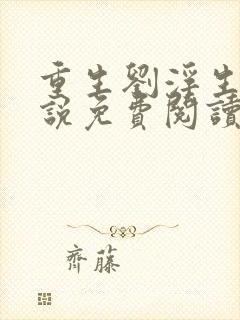 重生劉淫生
說免費閱讀
齊藤